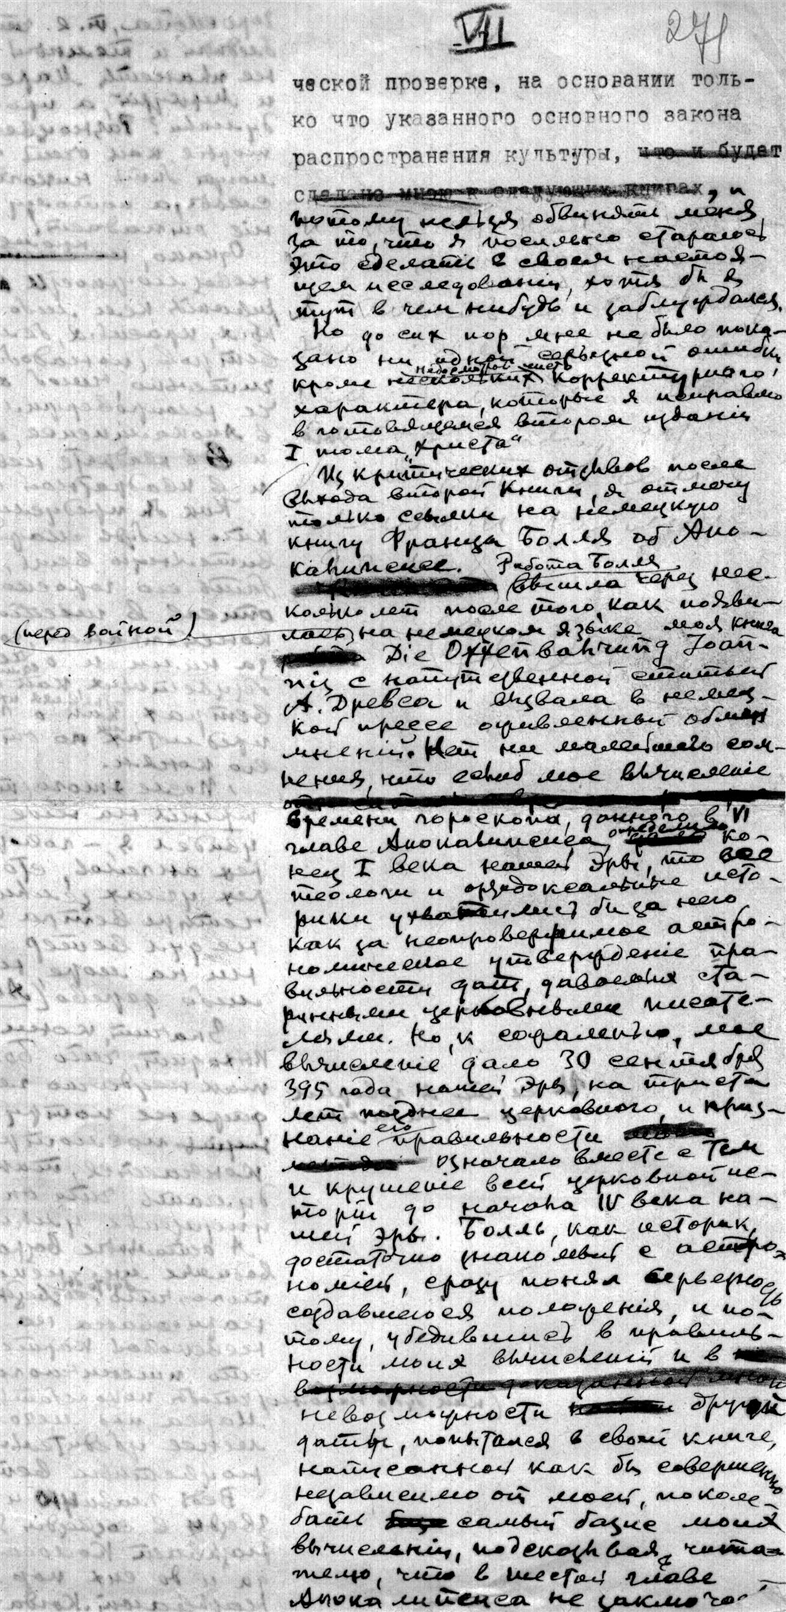 VII
271
ческой проверке, на основании толь-
ко что указанного основного закона
распространения культуры, что и будет
сделано мною в следующих книгах, и
потому нельзя обвинять меня
за то, что я посильно старался
это сделать в своем настоя-
щем исследовании, хотя бы я
тут в чем нибудь и заблуждался.
Но до сих пор мне не было пока-
зано ни одной серьезной ошибки
недосмотров чисто
кроме нескольких корректурного
характера, которые я исправлю
в готовящемся втором издании
I тома „Христа“
Из критических отзывов после
выхода второй книги, я отмечу
только ссылки на немецкую
книгу Франца Болля об Апо-
калипсисе. Работа Болля
вышла через нес-
колько лет после того, как появи-
(перед войной)
лась на немецком языке моя книга
Die Offenbahrung Joan-
nis с напутственной статьей
А. Древса и вызвала в немец-
кой прессе оживленный обмен
мнений. Нет ни малейшего сом-
нения, что если б мое вычисление
времени гороскопа, данного в VI
главе Апокалипсиса, определило ко-
нец I века нашей эры, то все
теологи и ортодоксальные исто-
рики ухватились бы за него
как за неопровержимое астро-
номическое утверждение пра-
вильности дат, даваемых ста-
ринными церковными писате-
лями. Но, к сожалению, мое
вычисление дало 30 сентября
395 года нашей эры, на триста
лет позднее церковного, и приз-
нание его правильности
означало вместе с тем
и крушение всей церковной ис-
тории до начала IV века на-
шей эры. Болль, как историк,
достаточно знакомый с астро-
номией, сразу понял серьезность
создавшегося положения, и по-
тому, убедившись в правиль-
ности моих вычислений и в
возможности доказанной мной
невозможности другой
даты, попытался в своей книге,
написанной как бы совершенно
независимо от моей, поколе-
бать самый базис моих
вычислений, подсказывая чита-
телю, что в шестой главе
Апокалипсиса не заключа-